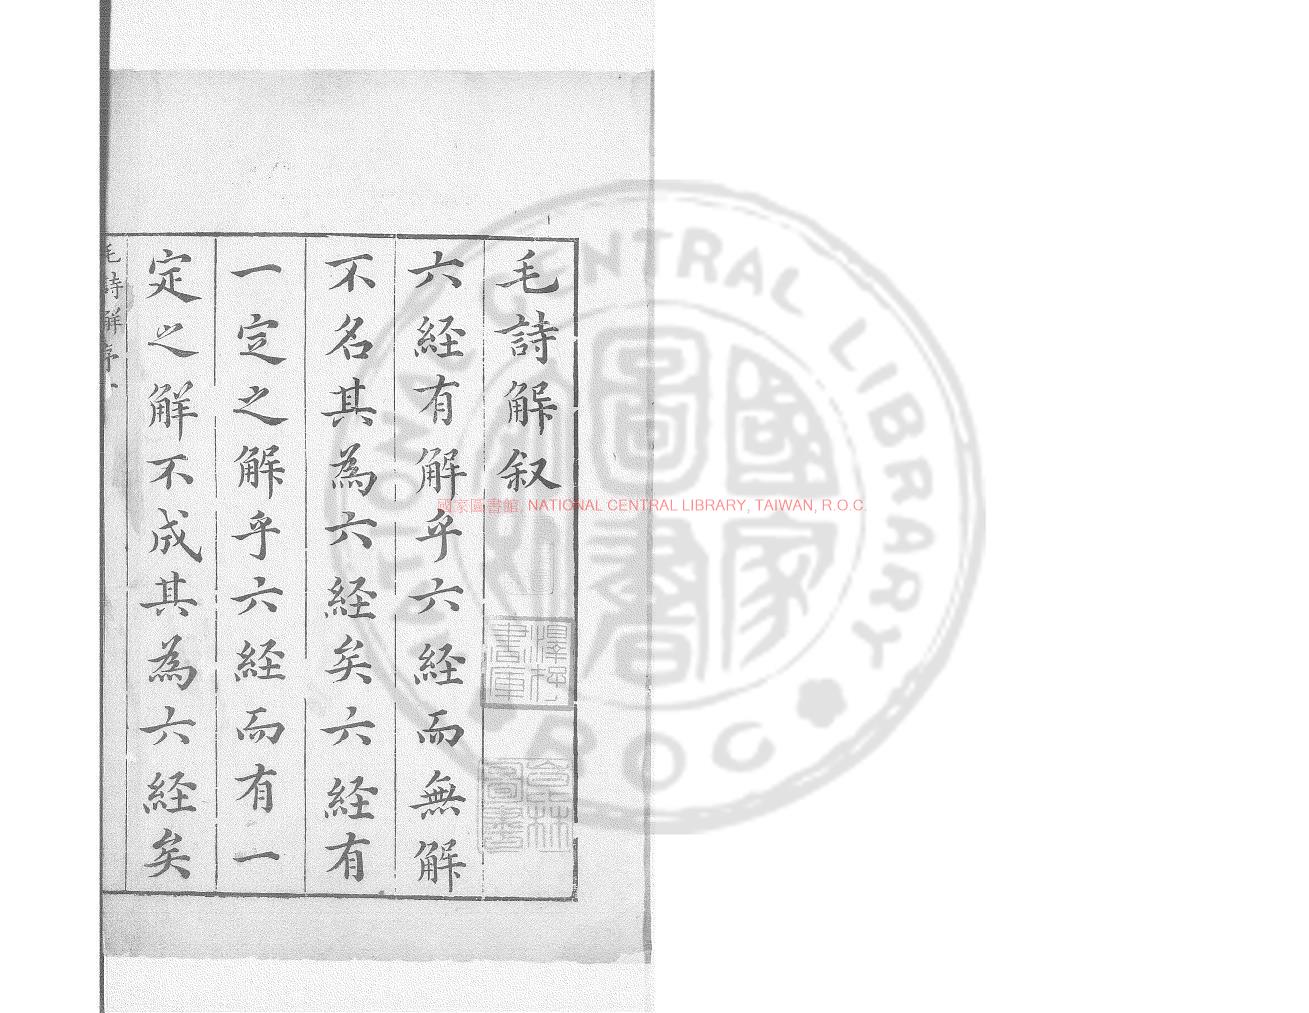 毛詩解叙
六経有解乎六経而無解
不名其為六経矣六経有
一定之解乎六経而有一
定之解不成其為六経矣
毛詩解序
國家圖書館, NATIONAL CENTRAL LIBRARY, TAIWAN, R.O.C.
NATIONAL CENTRAL LIBRARY
ROC
國家圖書館